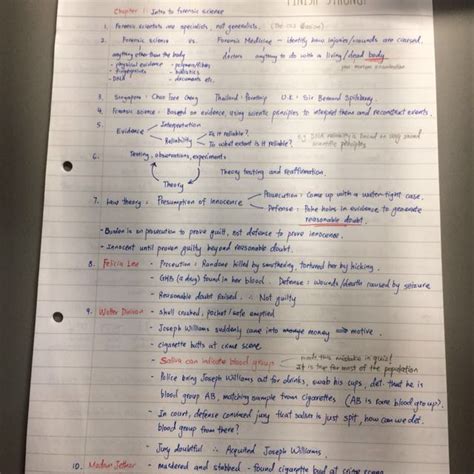 FINISH STRONG!
Chapter 1: Intro to forensic science
1. Forensic scientists are specialists, not generalists.
2. Forensic science vs. Forensic Medicine - identify how injuries/wounds are caused.
anything other than the body doctors anything to do with a living/dead body
- physical evidence - polymers/fibres post mortem examination
- fingerprints - ballistics
- DNA - documents etc.
3. Singapore: Chao Tzee Cheng Thailand: Porntip U.K: Sir Bernard Spilsbury
4. Forensic science: Based on evidence, using scientific principles to interpret them and reconstruct events.
5. Evidence Interpretation
Reliability Is it reliable?
To what extent is it reliable?
e.g. DNA reliability is based on very sound
scientific principles
6. Testing, observations, experiments
Theory testing and reaffirmation.
Theory
7. Law theory: Presumption of Innocence Prosecution: Come up with a water-tight case.
Defense: Poke holes in evidence to generate
reasonable doubt.
- Burden is on prosecution to prove guilt, not defense to prove innocence.
- Innocent until proven guilty beyond reasonable doubt.
8. Felicia Lee - Prosecution: Randone killed by smothering, tortured her by kicking.
- GHB (a drug) found in her blood. Defense: wounds/death caused by seizure
- Reasonable doubt raised. ∴ Not guilty
9. Walter Dinivan - skull crushed, pocket/safe emptied
- Joseph Williams suddenly came into money → motive.
- cigarette butts at crime scene
- Saliva can indicate blood group → made this mistake in quiz!
It is true for most of the population
- Police bring Joseph Williams out for drinks, swab his cups, det. that he is
blood group AB, matching sample from cigarettes (AB is rare blood group).
- In court, defense convinced jury that saliva is just spit, how can we det.
blood group from there?
- Jury doubtful ∴ Acquitted Joseph Williams.
10. Madam Jethar - murdered and stabbed - found cigarette butt at crime scene